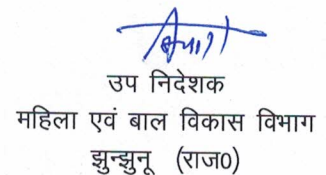 उप निदेशक
महिला एवं बाल विकास विभाग
झुन्झुनू (राज0)